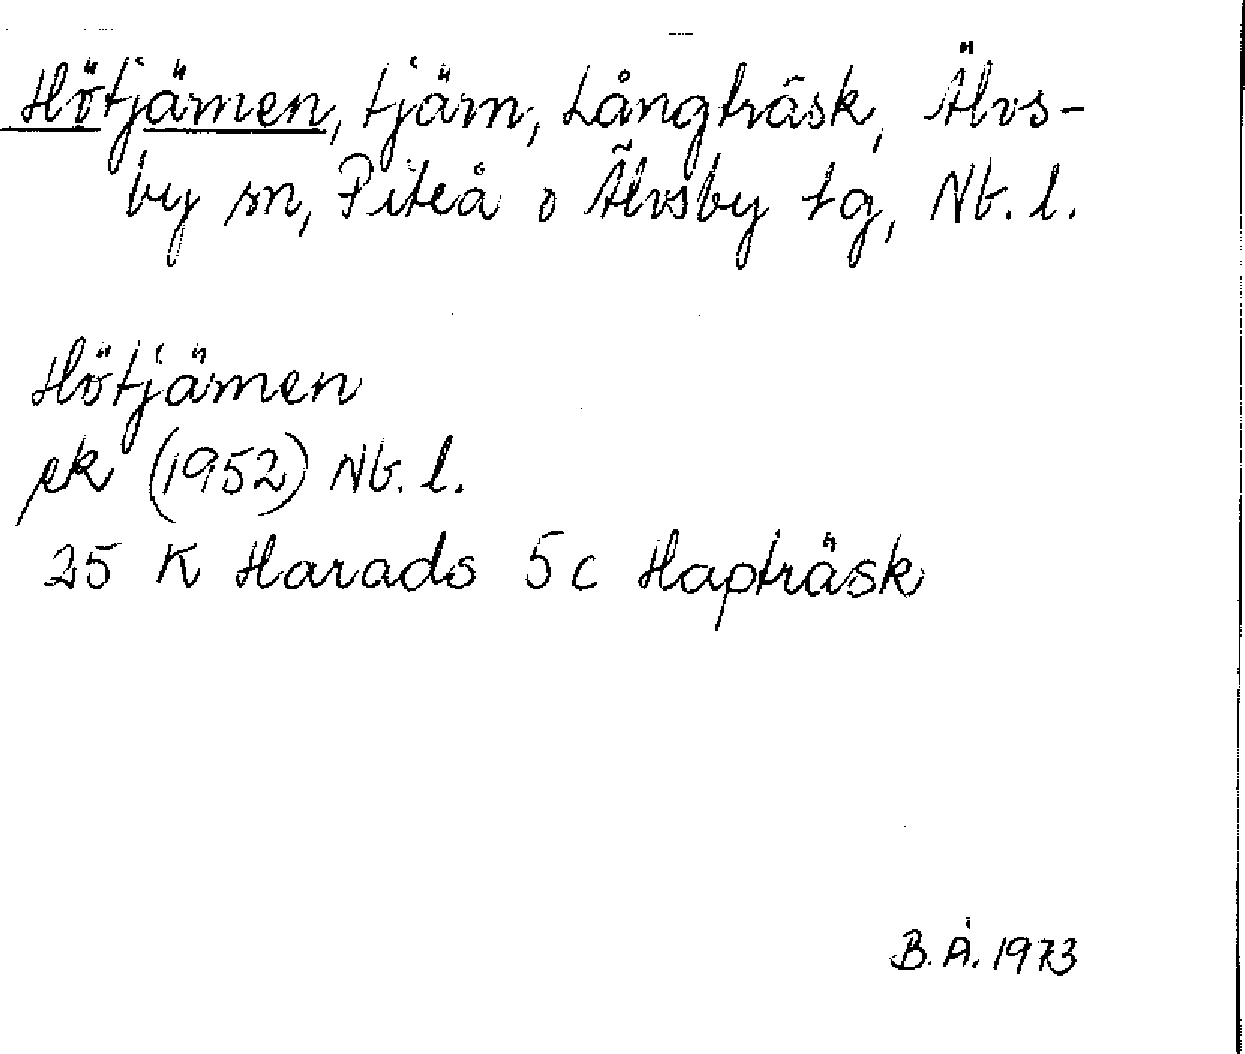 Hötjärnen, tjärn, Långträsk, Älvs-
by sn, Piteå o Älvsby tg, Nb. l.
Hötjärnen
ek (1952) Nb. l.
25 K Harads 5c Hapträsk
B.Å. 1973